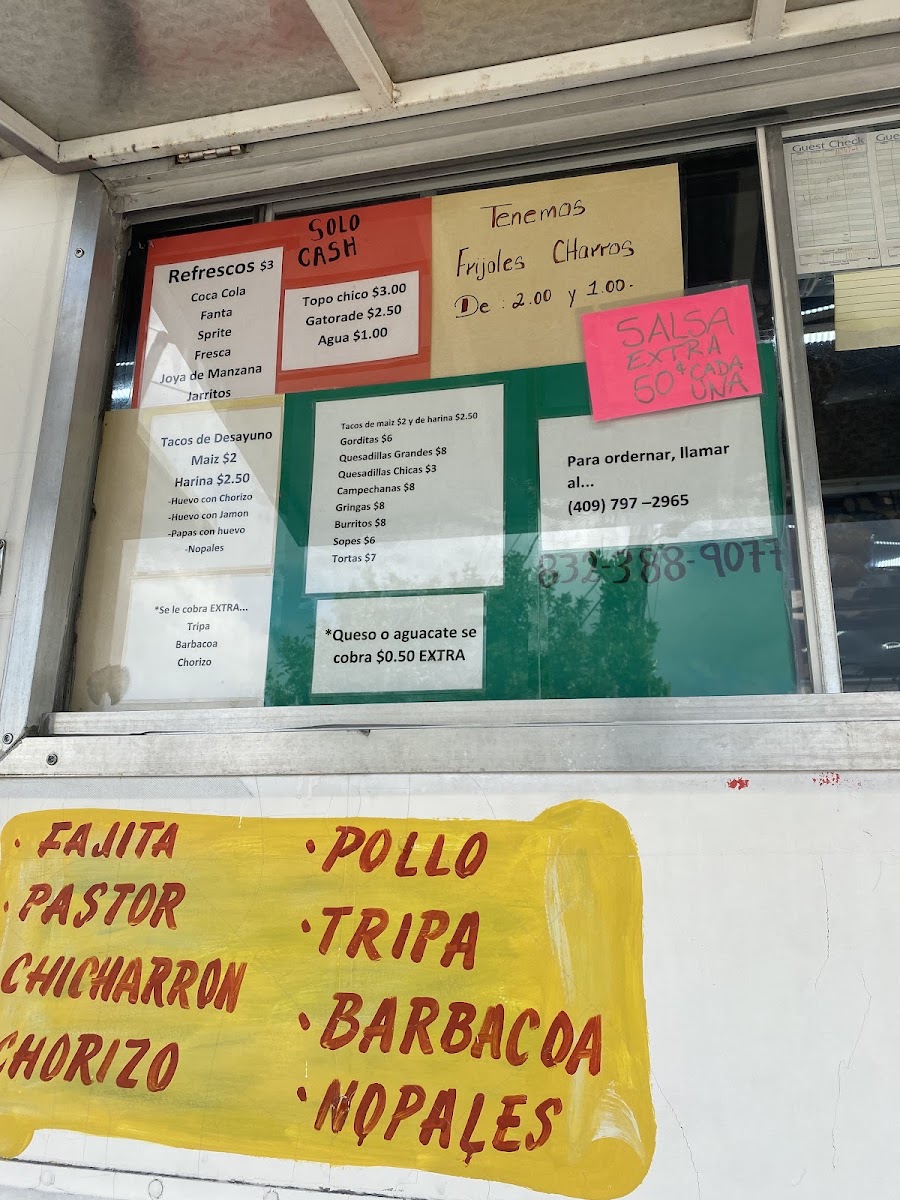 SOLO
CASH
Refrescos $3
Coca Cola
Fanta
Sprite
Fresca
Joya de Manzana
Jarritos
Topo chico $3.00
Gatorade $2.50
Agua $1.00
Tenemos
Frijoles CHarros
De : 2.00 y 1.00.
SALSA
EXTRA
50¢ CADA
UNA
Guest Check
Tacos de Desayuno
Maiz $2
Harina $2.50
-Huevo con Chorizo
-Huevo con Jamon
-Papas con huevo
-Nopales
*Se le cobra EXTRA...
Tripa
Barbacoa
Chorizo
Tacos de maiz $2 y de harina $2.50
Gorditas $6
Quesadillas Grandes $8
Quesadillas Chicas $3
Campechanas $8
Gringas $8
Burritos $8
Sopes $6
Tortas $7
*Queso o aguacate se
cobra $0.50 EXTRA
Para ordernar, llamar
al...
(409) 797 –2965
832-388-9077
· FAJITA
· PASTOR
CHICHARRON
CHORIZO
· POLLO
· TRIPA
· BARBACOA
· NOPALES